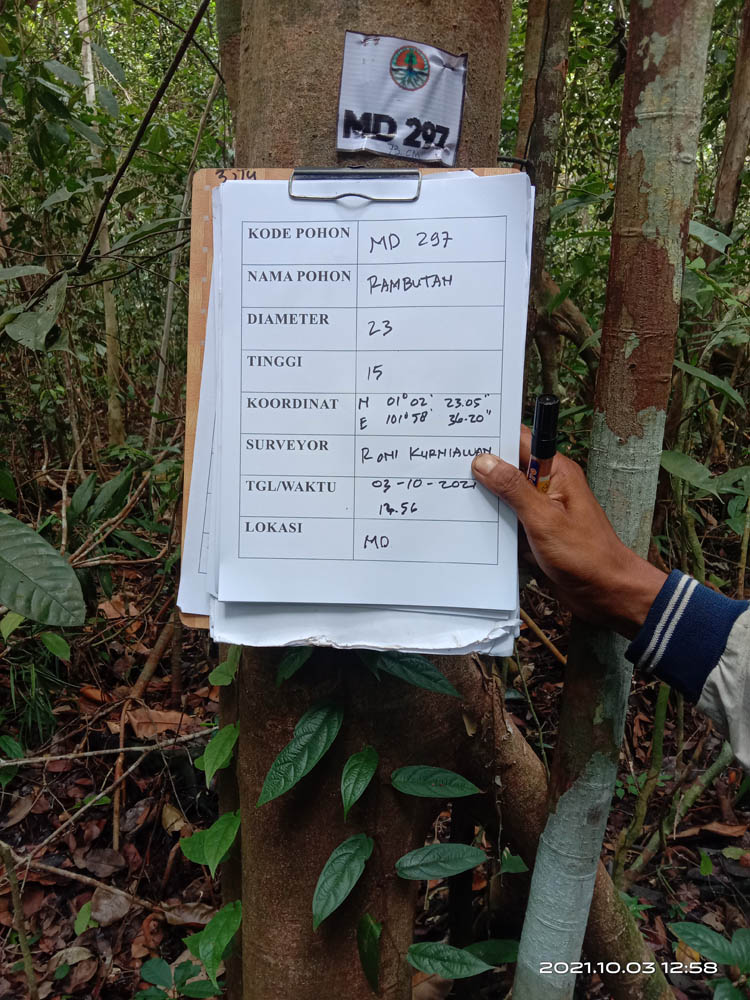 MD 297
23 CM
KODE POHON MD 297
NAMA POHON RAMBUTAN
DIAMETER 23
TINGGI 15
KOORDINAT N 01° 02' 23.05"
E 101° 58' 36.20"
SURVEYOR ROMI KURNIAWAN
TGL/WAKTU 03-10-2021
12.56
LOKASI MD
2021.10.03 12:58